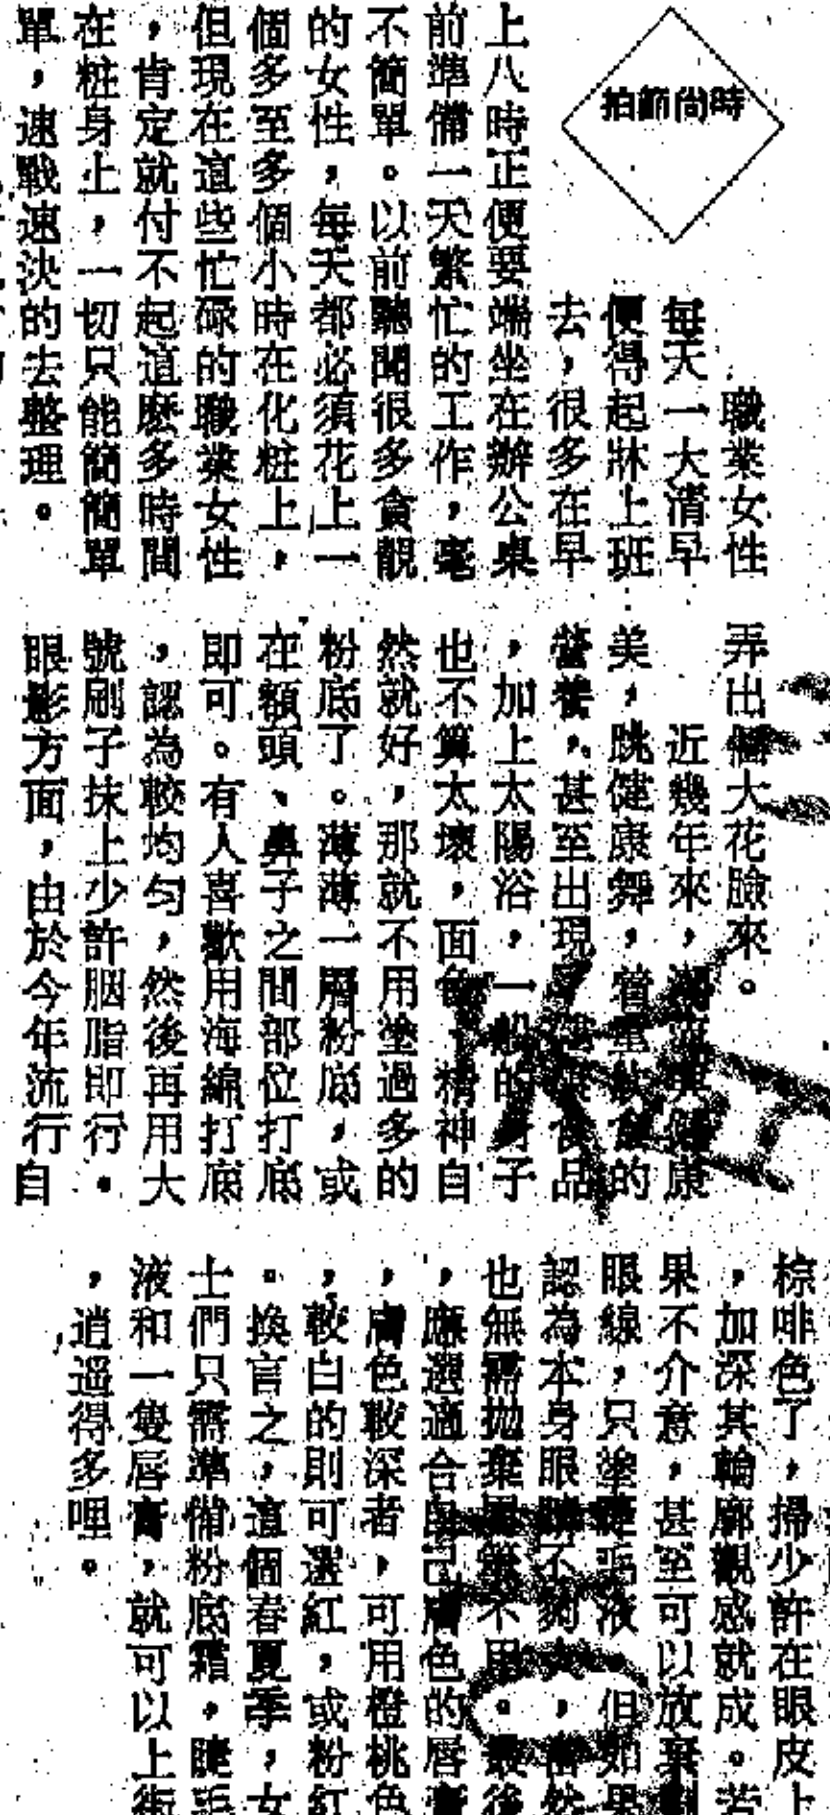 拍節尚時
職業女性
每天一大清早
便得起牀上班
去，很多在早
上八時正便要端坐在辦公桌
前準備一天繁忙的工作，毫
不簡單。以前聽聞很多貪靚
的女性，每天都必須花上一
個多至多個小時在化粧上，
但現在這些忙碌的職業女性
，肯定就付不起這麽多時間
在粧身上，一切只能簡簡單
單，速戰速決的去整理。
弄出個大花臉來。
近幾年來，健康
美，跳健康舞，着重的
營養，甚至出現食品
，加上太陽浴，一般的身子
也不算太壞，面色、精神自
然就好，那就不用塗過多的
粉底了。薄薄一層粉底，或
在額頭、鼻子之間部位打底
即可。有人喜歡用海綿打底
，認為較均勻，然後再用大
號刷子抹上少許胭脂即行。
眼影方面，由於今年流行自
棕啡色了，掃少許在眼皮上
，加深其輪廓觀感就成。若
果不介意，甚至可以放棄劃
眼線，只塗睫毛液，但如果
認為本身眼睛不夠大，當然
也無需拋棄眼線不用。最後
，應選適合自己膚色的唇膏
，膚色較深者，可用橙桃色
，較白的則可選紅，或粉紅
。換言之，這個春夏季，女
士們只需準備粉底霜，睫毛
液和一隻唇膏，就可以上街
，逍遥得多哩。